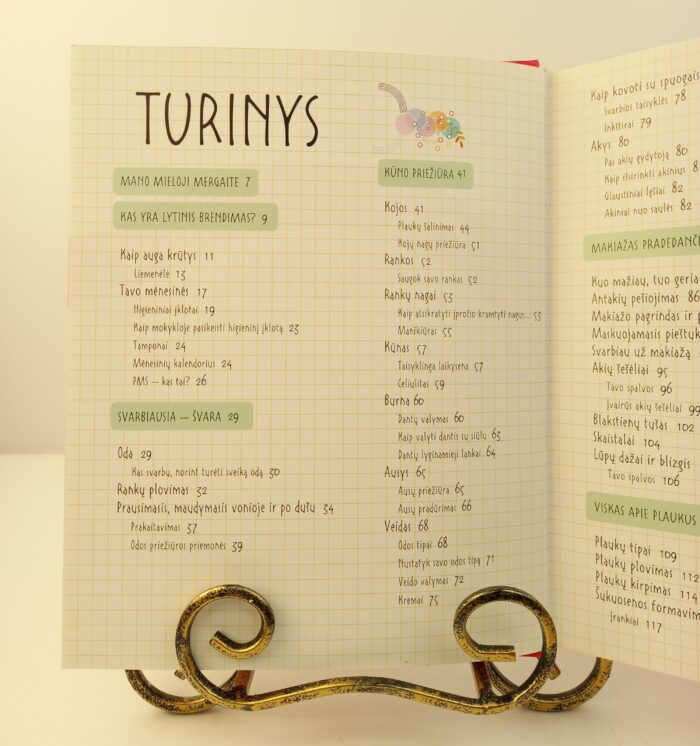 TURINYS
MANO MIELOJI MERGAITE 7
KAS YRA LYTINIS BRENDIMAS? 9
Kaip auga krūtys 11
Liemenėlė 13
Tavo mėnesinės 17
Higieniniai įklotai 19
Kaip mokykloje pasikeisti higieninį įklotą 23
Tamponai 24
Mėnesinių kalendorius 24
PMS – kas tai? 26
SVARBIAUSIA – ŠVARA 29
Oda 29
Kas svarbu, norint turėti sveiką odą 30
Rankų plovimas 32
Prausimasis, maudymasis vonioje ir po dušu 34
Prakaitavimas 37
Odos priežiūros priemonės 39
KŪNO PRIEŽIŪRA 41
Kojos 41
Plaukų šalinimas 44
Kojų nagų priežiūra 51
Rankos 52
Saugok savo rankas 52
Rankų nagai 53
Kaip atsikratyti įpročio kramtyti nagus... 53
Manikiūras 55
Kūnas 57
Taisyklinga laikysena 57
Celiulitas 59
Burna 60
Dantų valymas 60
Kaip valyti dantis su siūlu 63
Dantų lyginamieji lankai 64
Ausys 65
Ausų priežiūra 65
Ausų pradūrimas 66
Veidas 68
Odos tipai 68
Nustatyk savo odos tipą 71
Veido valymas 72
Kremai 75
Kaip kovoti su spuogais
Svarbios taisyklės 78
Inkštirai 79
Akys 80
Pas akių gydytoją 80
Kaip išsirinkti akinius
Glaustiniai lęšiai 82
Akiniai nuo saulės 82
MAKIAŽAS
Kuo mažiau, tuo
Antakių pešiojimas
Makiažo pagrindas ir
Maskuojamasis
Svarbiau už makiažą
Akių šešėliai 95
Tavo spalvos 96
Įvairūs akių šešėliai 99
Blakstienų tušas 102
Skaistalai 104
Lūpų dažai ir blizgis
Tavo spalvos 106
VISKAS APIE PLAUKUS
Plaukų tipai 109
Plaukų plovimas 112
Plaukų kirpimas 114
Šukuosenos
Įrankiai 117